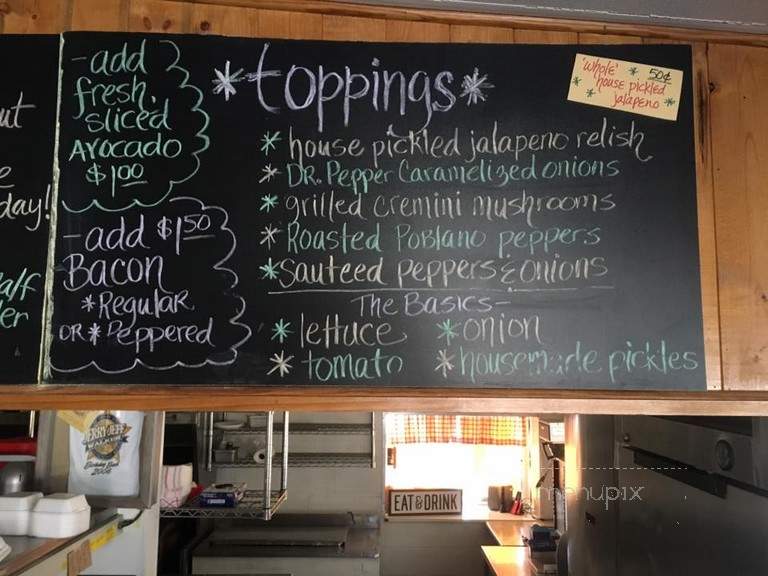 ut
e
day!
alf
er
-add
fresh
sliced
Avocado
$1.00
-add $1.50
Bacon
*Regular
OR *Peppered
*toppings*
*house pickled jalapeno relish
*DR. Pepper Caramelized onions
*grilled cremini mushrooms
*Roasted Poblano peppers
*Sauteed peppers & onions
The Basics-
*lettuce *onion
*tomato *housemade pickles
'whole' * 50¢
*house pickled
*jalapeno*
JERRY JEFF
WALKER
Birthday Bash
EAT & DRINK
menupix